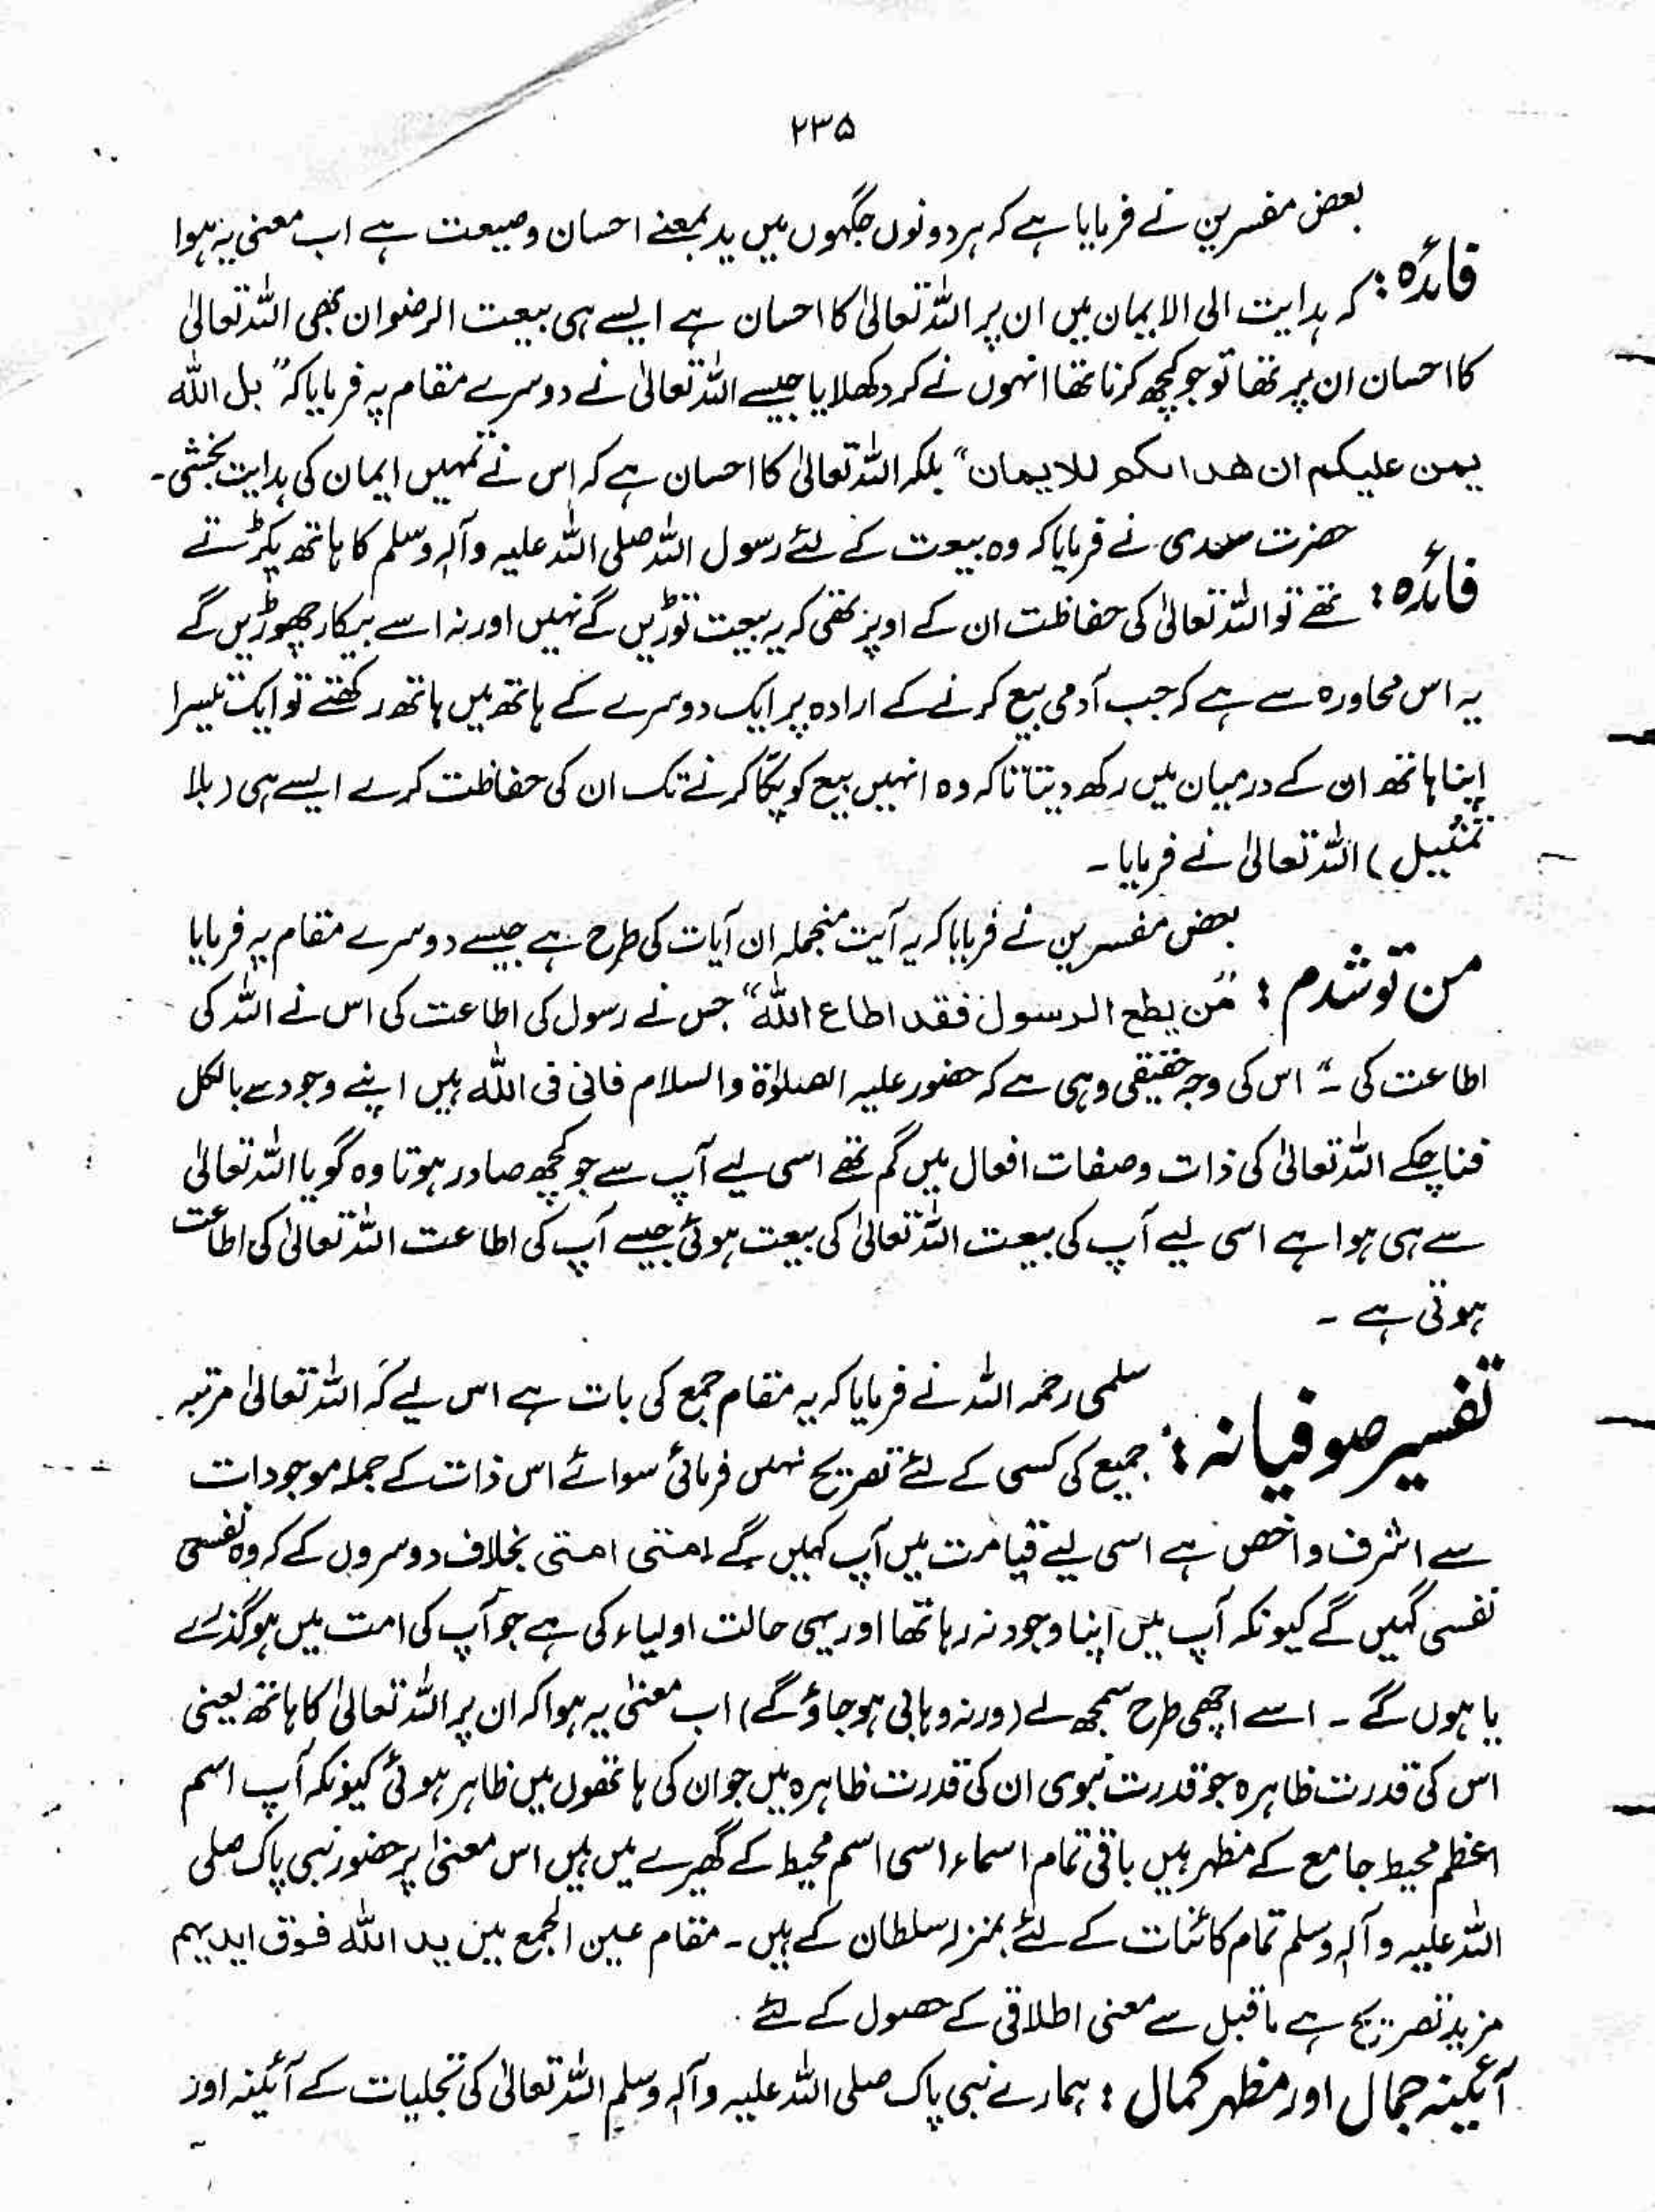 ۲۳۵
بعض مفسرین نے فرمایا ہے کہ ہر دونوں جگہوں میں ید بمعنے احسان وصیعت ہے اب معنی یہ ہوا
فائدہ : کہ ہدایت الی الایمان میں ان پر اللہ تعالیٰ کا احسان ہے ایسے ہی بیعت الرضوان بھی اللہ تعالیٰ
کا احسان ان پر تھا تو جو کچھ کرنا تھا انہوں نے کر دکھلایا جیسے اللہ تعالیٰ نے دوسرے مقام پہ فرمایا کہ "بل اللہ
یمن علیکم ان ھداکم للایمان" بلکہ اللہ تعالیٰ کا احسان ہے کہ اس نے تمہیں ایمان کی ہدایت بخشی۔
حضرت سدی نے فرمایا کہ وہ بیعت کے لئے رسول اللہ صلی اللہ علیہ وآلہ وسلم کا ہاتھ پکڑتے
فائدہ : تھے تو اللہ تعالیٰ کی حفاظت ان کے اوپر تھی کہ یہ بیعت توڑیں گے نہیں اور نہ اسے بیکار چھوڑیں گے
یہ اس محاورہ سے ہے کہ جب آدمی بیع کرنے کے ارادہ پر ایک دوسرے کے ہاتھ میں ہاتھ رکھتے تو ایک تیسرا
اپنا ہاتھ ان کے درمیان میں رکھ دیتا تاکہ وہ انہیں بیع کو پکا کرنے تک ان کی حفاظت کرے ایسے ہی (بلا
تمثیل) اللہ تعالیٰ نے فرمایا ۔
بعض مفسرین نے فرمایا کہ یہ آیت منجملہ ان آیات کی طرح ہے جیسے دوسرے مقام پہ فرمایا
من تو شدم : "من یطع الرسول فقد اطاع اللہ" جس نے رسول کی اطاعت کی اس نے اللہ کی
اطاعت کی ۔" اس کی وجہ حقیقی وہی ہے کہ حضور علیہ الصلوٰۃ والسلام فانی فی اللہ ہیں اپنے وجود سے بالکل
فنا چکے اللہ تعالیٰ کی ذات وصفات افعال میں گم تھے اسی لیے آپ سے جو کچھ صادر ہوتا وہ گویا اللہ تعالیٰ
سے ہی ہوا ہے اسی لیے آپ کی بیعت اللہ تعالیٰ کی بیعت ہوئی جیسے آپ کی اطاعت اللہ تعالیٰ کی اطاعت
ہوتی ہے ۔
سلمی رحمہ اللہ نے فرمایا کہ یہ مقام جمع کی بات ہے اس لیے کہ اللہ تعالیٰ مرتبہ
تفسیر صوفیانہ : جمیع کی کسی کے لئے تصریح نہیں فرمائی سوائے اس ذات کے جملہ موجودات
سے اشرف و اخص ہے اسی لیے قیامت میں آپ کہیں گے امتی امتی بخلاف دوسروں کے کہ وہ نفسی
نفسی کہیں گے کیونکہ آپ میں اپنا وجود نہ رہا تھا اور یہی حالت اولیاء کی ہے جو آپ کی امت میں ہو گذرے
یا ہوں گے ۔ اسے اچھی طرح سمجھ لے (ورنہ وہابی ہو جاؤ گے) اب معنیٰ یہ ہوا کہ ان پر اللہ تعالیٰ کا ہاتھ یعنی
اس کی قدرت ظاہرہ جو قدرت نبوی ان کی قدرت ظاہرہ میں جو ان کی ہاتھوں میں ظاہر ہوئی کیونکہ آپ اسم
اعظم محیط جامع کے مظہر ہیں باقی تمام اسماء اسی اسم محیط کے گھیرے میں ہیں اس معنیٰ پر حضور نبی پاک صلی
اللہ علیہ وآلہ وسلم تمام کائنات کے لئے بمنزلہ سلطان کے ہیں ۔ مقام عین الجمع میں ید اللہ فوق ایدیہم
مزید تصریح ہے ماقبل سے معنی اطلاقی کے حصول کے لئے ۔
آئینہ جمال اور مظہر کمال : ہمارے نبی پاک صلی اللہ علیہ وآلہ وسلم اللہ تعالیٰ کی تجلیات کے آئینہ اور